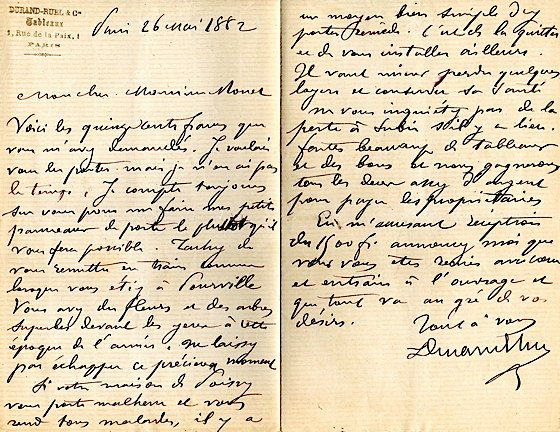 DURAND-RUEL & Cie
Tableaux
1, Rue de la Paix, 1
PARIS
Paris 26 Mai 1882
Mon cher Monsieur Monet
Voici les quinze cents francs que
vous m'avez demandés. Je voulais
vous les porter mais je n'en ai pas
le temps. Je compte toujours
sur vous pour me faire mes petits
panneaux de porte le plus tôt qu'il
vous sera possible. Tachez de
vous remettre en train comme
lorsque vous étiez à Pourville
Vous avez des fleurs et des arbres
superbes devant les yeux à cette
époque de l'année, ne laissez
pas échapper ce précieux moment
Si votre maison de Poissy
vous porte malheur et vous
rend tous malades, il y a
un moyen bien simple d'y
porter remède. C'est de la quitter
et de vous installer ailleurs.
Il vaut mieux perdre quelques
loyers et conserver sa santé
Ne vous inquiétez pas de la
perte à subir s'il y a lieu.
Faites beaucoup de tableaux
et des bons et nous gagnerons
tous les deux assez d'argent
pour payer les propriétaires
En m'accusant réception
des 1500 f. annoncez moi que
vous vous êtes remis avec
et entrain à l'ouvrage et
que tout va au gré de vos
désirs.
Tout à vous
Durand Ruel